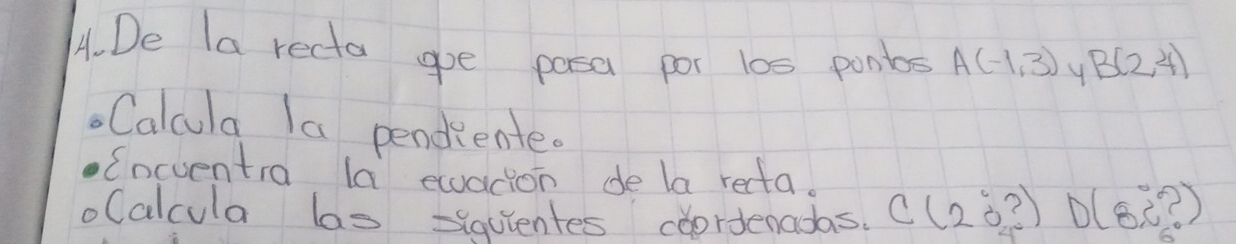 4. De la recta que pasa por los pontos A(-1,3) y B(2,4)
•Calcula la pendiente.
•Encuentra la ecuación de la recta.
•Calcula las siguientes coordenadas. C(2¿?) D(8¿?)
4 6